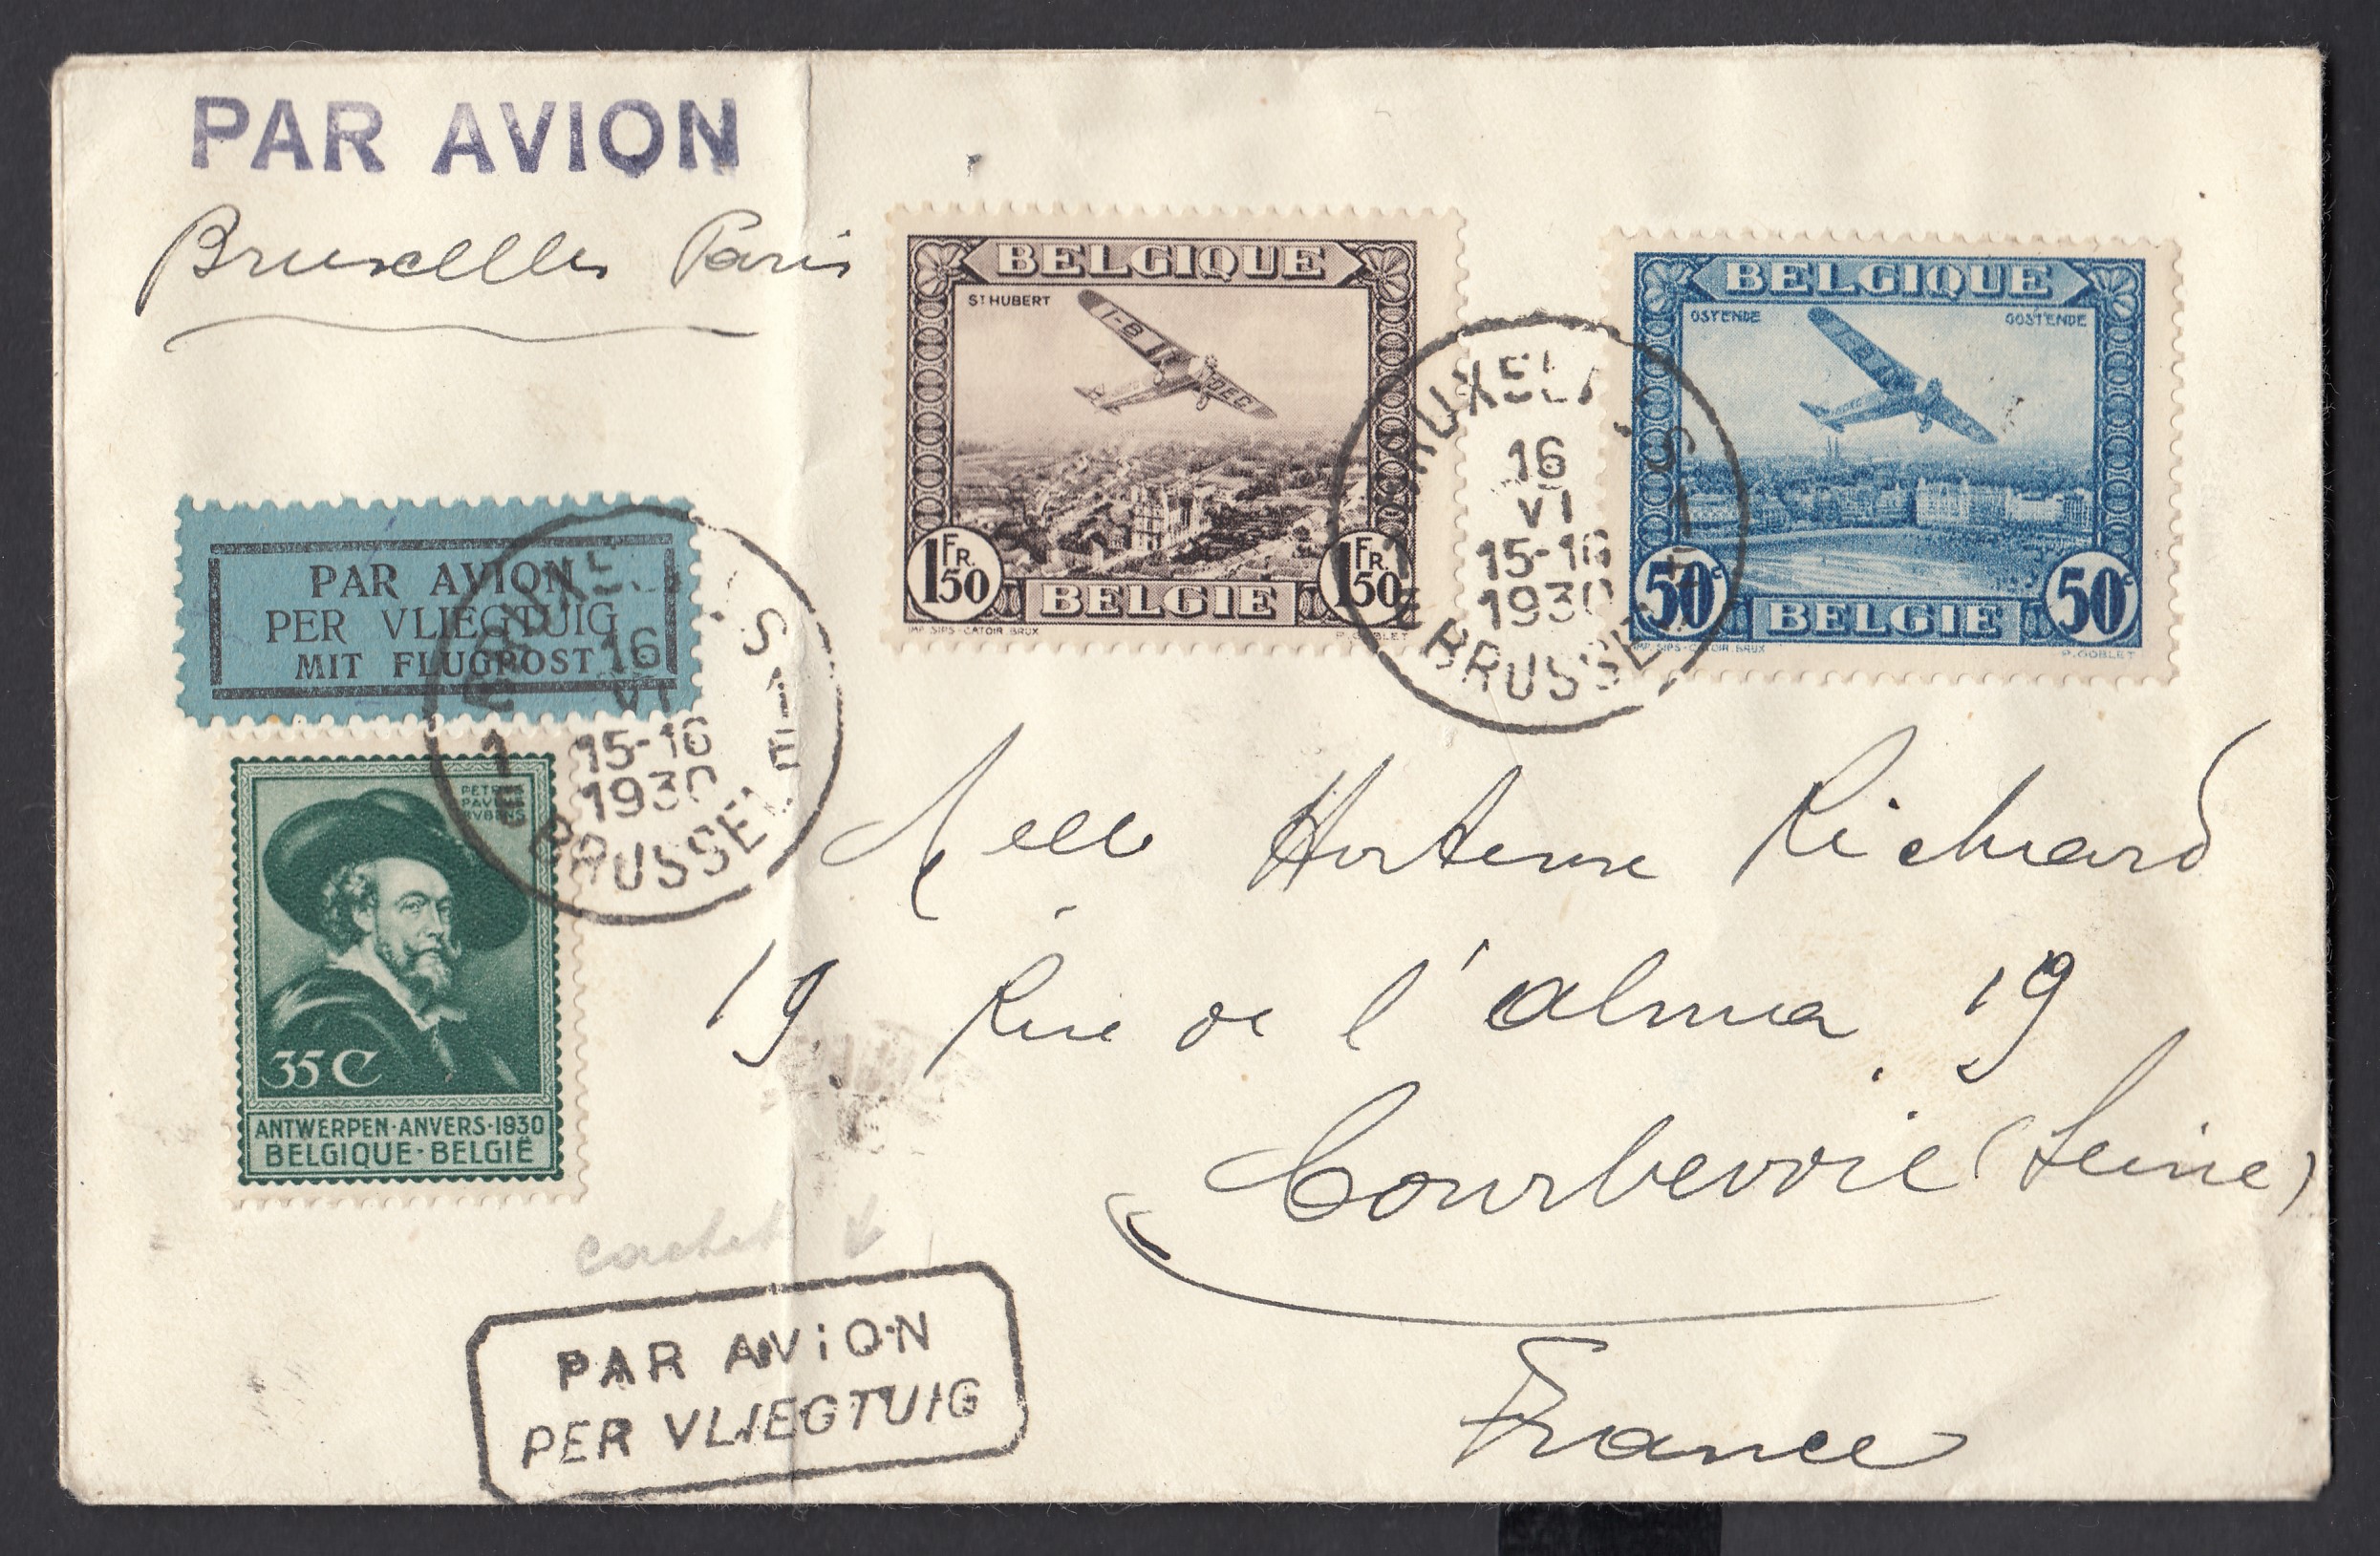 PAR AVION
Bruxelles Paris
BELGIQUE
ST HUBERT
1 FR. 50
1 FR. 50
BELGIE
IMP. SIPS-CATOIR. BRUX
P. GOBLET
BELGIQUE
OSTENDE OOSTENDE
50 c
50 c
BELGIE
IMP. SIPS-CATOIR. BRUX
P. GOBLET
16
VI
15-16
1930
BRUSSEL
PAR AVION
PER VLIEGTUIG
MIT FLUGPOST
16
VI
15-16
1930
BRUSSEL
PETRVS
PAVLVS
RVBENS
35 C
ANTWERPEN·ANVERS·1930
BELGIQUE·BELGIË
Melle Hortense Richard
19 Rue de l'alma 19
Courbevoie (Seine)
France
cachet ↓
PAR AViON
PER VLIEGTUIG